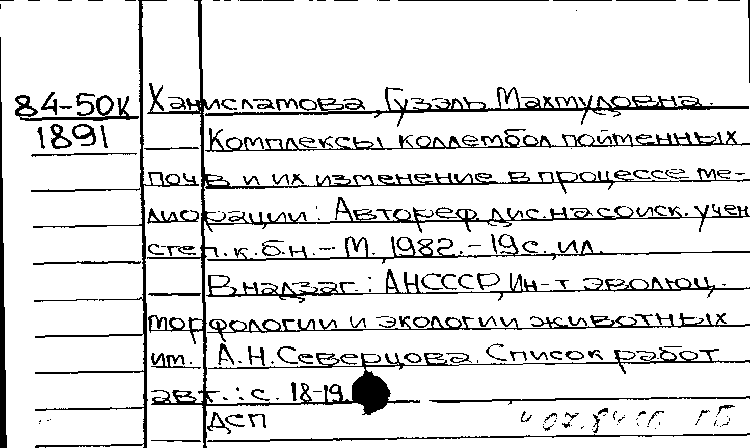 84-50к
1891
Ханисламова, Гузэль Махмудовна.
Комплексы коллембол пойменных
почв и их изменение в процессе ме-
лиорации: Автореф. дис. на соиск. учен.
степ. к. б. н. - М., 1982. - 19 с., ил.
В надзаг.: АН СССР, Ин-т эволюц.
морфологии и экологии животных
им. А.Н. Северцова. Список работ
авт.: с. 18-19.
ДСП